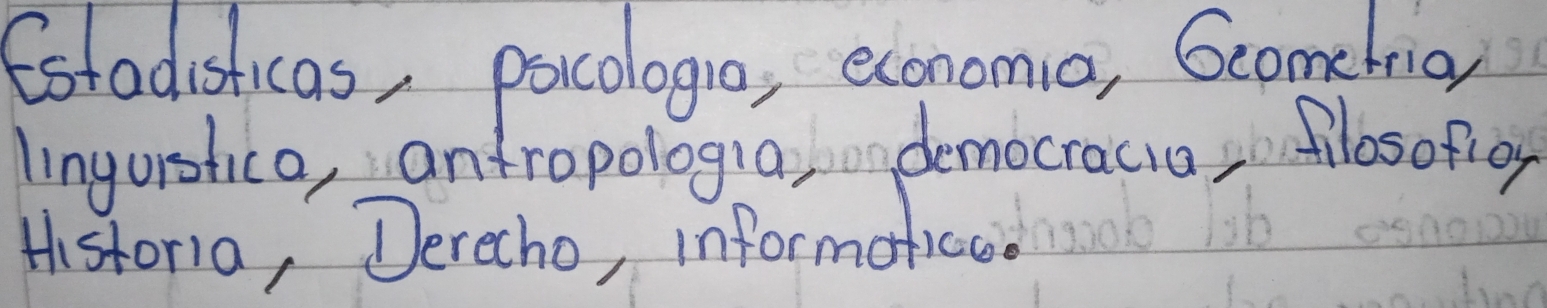 Estadisticas, psicologia, economia, Geometria,
linguistica, antropologia, democracia, filosofia,
Historia, Derecho, informatica.